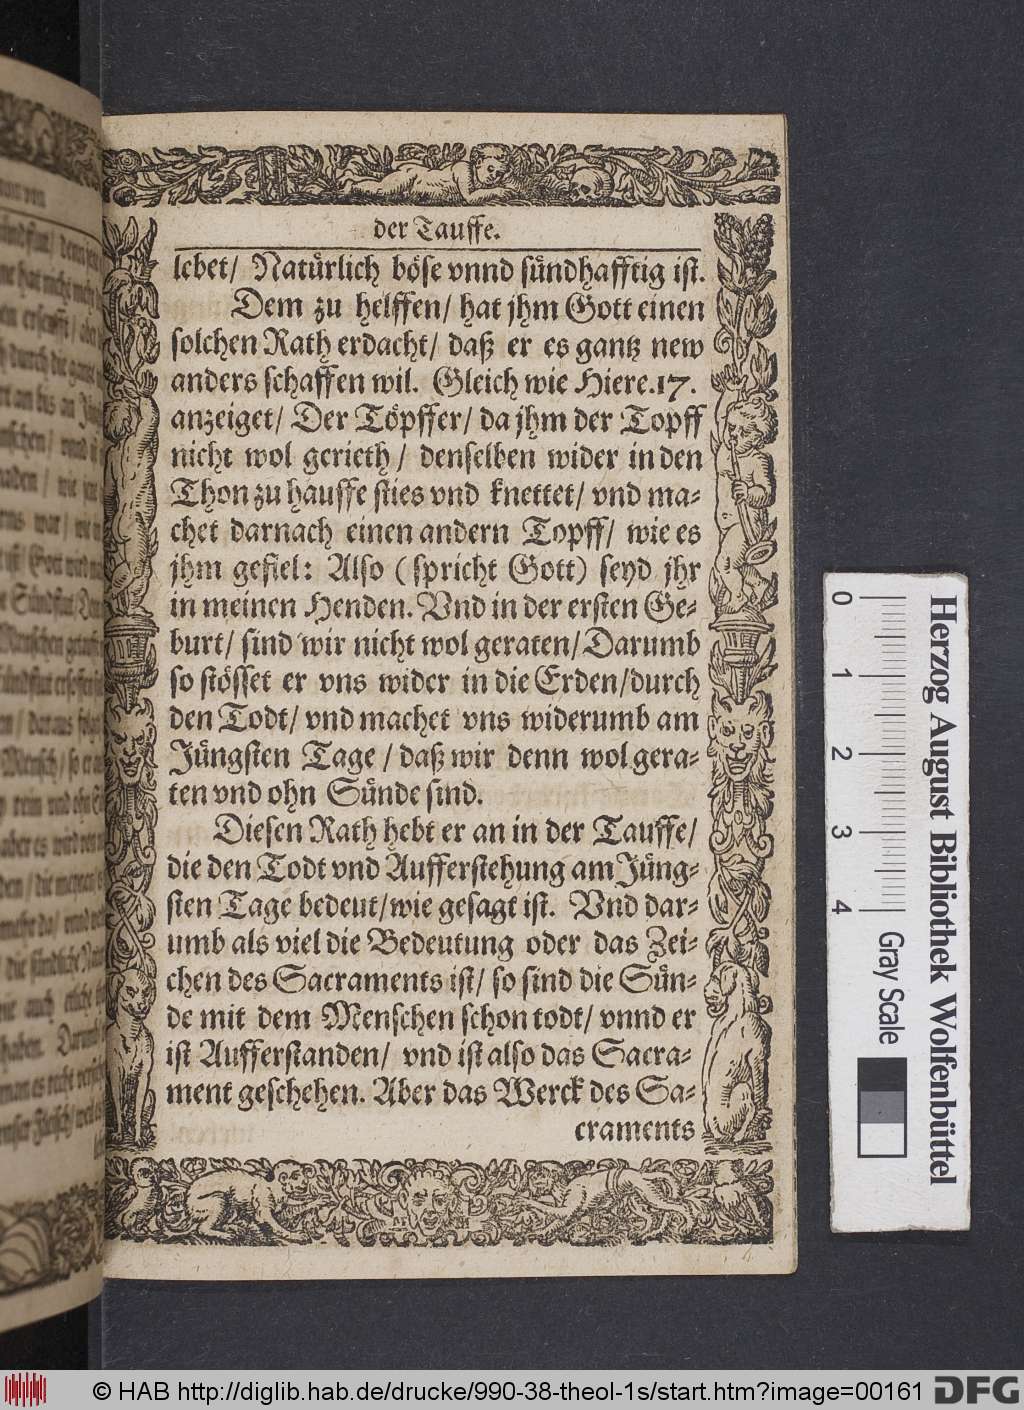 der Tauffe.
lebet/ Natürlich böse vnnd sündhafftig ist.
Dem zu helffen/ hat jhm Gott einen
solchen Rath erdacht/ daß er es gantz new
anders schaffen wil. Gleich wie Hiere.17.
anzeiget/ Der Töpffer/ da jhm der Topff
nicht wol gerieth/ denselben wider in den
Thon zu hauffe sties vnd knettet/ vnd ma-
chet darnach einen andern Topff/ wie es
jhm gefiel: Also (spricht Gott) seyd jhr
in meinen Henden. Vnd in der ersten Ge-
burt/ sind wir nicht wol geraten/ Darumb
so stösset er vns wider in die Erden/durch
den Todt/ vnd machet vns widerumb am
Jüngsten Tage/ daß wir denn wol gera-
ten vnd ohn Sünde sind.
Diesen Rath hebt er an in der Tauffe/
die den Todt vnd Aufferstehung am Jüng-
sten Tage bedeut/wie gesagt ist. Vnd dar-
umb als viel die Bedeutung oder das Zei-
chen des Sacraments ist/ so sind die Sün-
de mit dem Menschen schon todt/ vnnd er
ist Aufferstanden/ vnd ist also das Sacra-
ment geschehen. Aber das Werck des Sa-
craments
0 1 2 3 4
Gray Scale
Herzog August Bibliothek Wolfenbüttel
© HAB http://diglib.hab.de/drucke/990-38-theol-1s/start.htm?image=00161
DFG